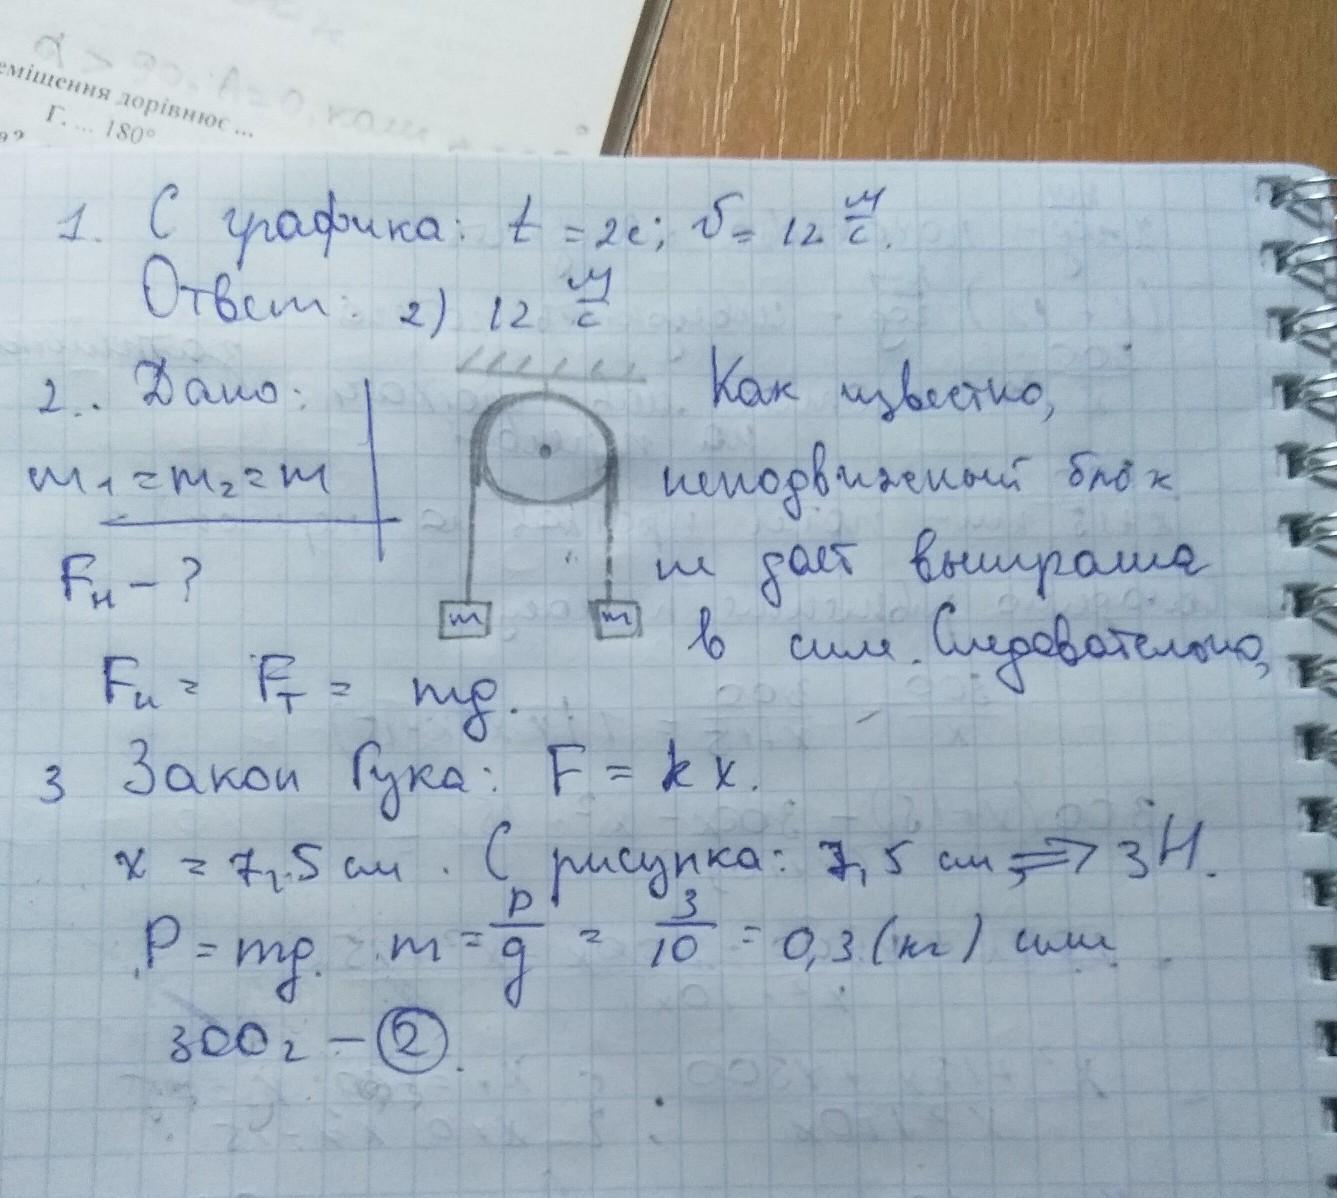 еміщення дорівнює ...
Г. ... 180°
1. С графика: t = 2с; υ = 12 м/с.
Ответ: 2) 12 м/с
2. Дано:
m₁ = m₂ = m
Fн - ?
m m
Как известно,
неподвижный блок
не дает выигрыша
в силе. Следовательно,
Fн = Fт = mg.
3 Закон Гука: F = kx.
x = 7,5 см. С рисунка: 7,5 см ⇒ 3Н.
P = mg. m = P/g = 3/10 = 0,3 (кг) или
300 г - 2.